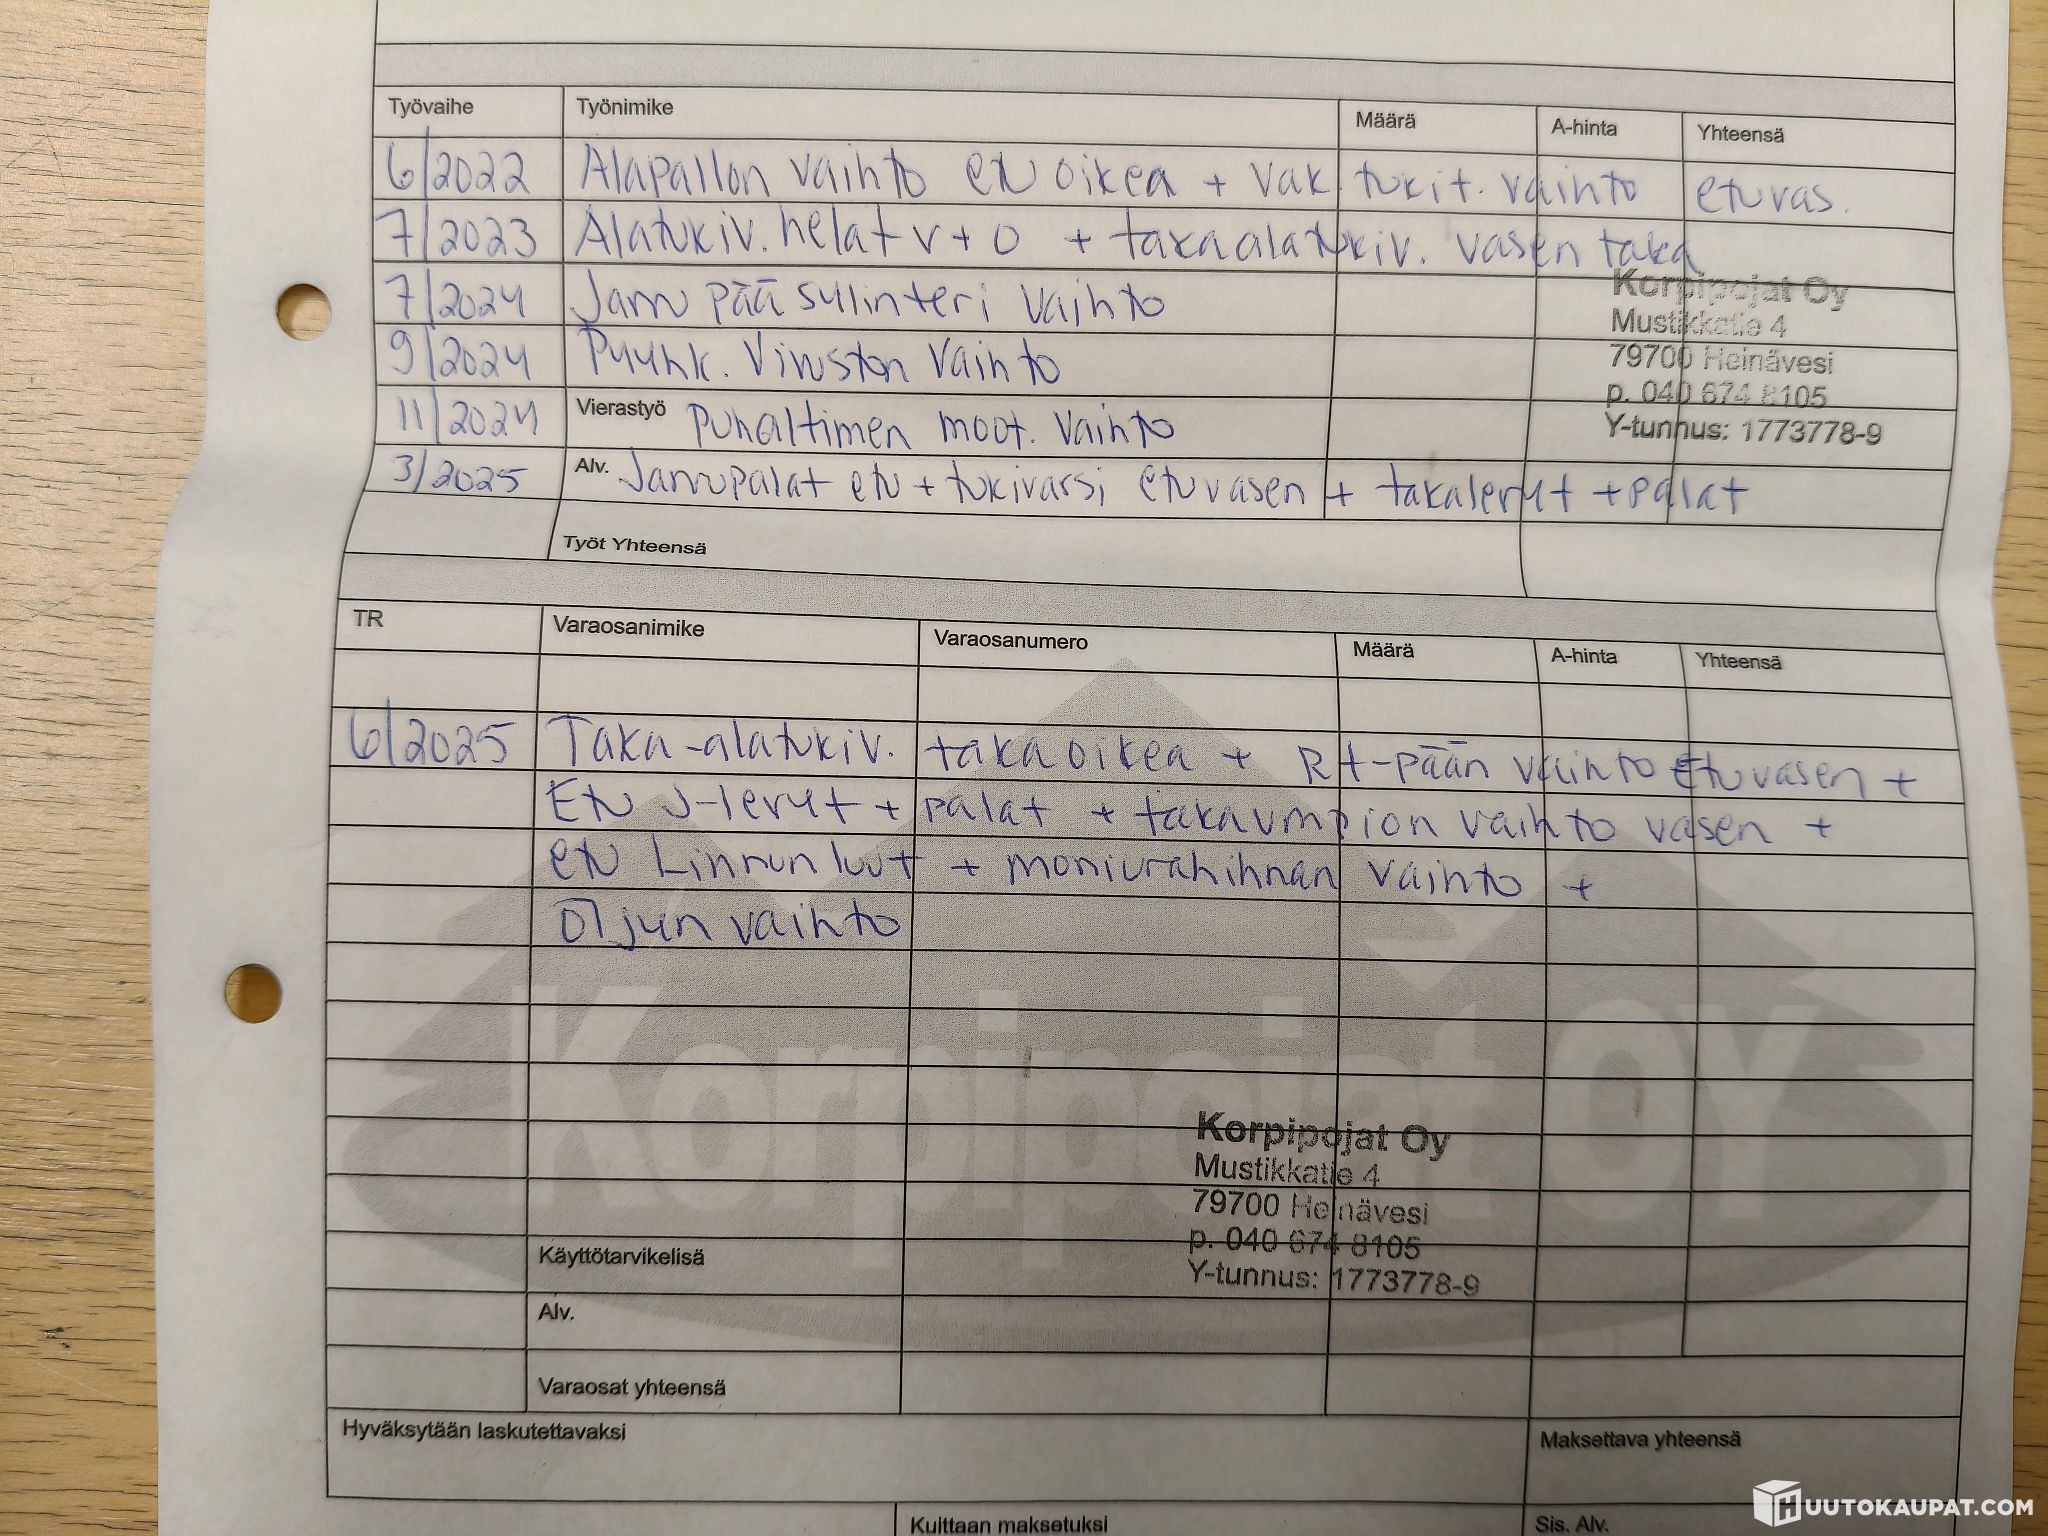 Työvaihe Työnimike Määrä A-hinta Yhteensä
6/2022 Alapallon vaihto etu oikea + vak. tukit. vaihto etuvas.
7/2023 Alatukiv. helat v + o + taka alatukiv. vasen taka
7/2024 Jarru pää sylinteri vaihto
9/2024 Pyyhk. Vivuston vaihto
11/2024 Vierastyö Puhaltimen moot. vaihto
3/2025 Alv. Jarrupalat etu + tukivarsi etuvasen + takalevyt + palat
Työt Yhteensä
Korpipojat Oy
Mustikkatie 4
79700 Heinävesi
p. 040 674 8105
Y-tunnus: 1773778-9
TR Varaosanimike Varaosanumero Määrä A-hinta Yhteensä
6/2025 Taka-alatukiv. taka oikea + Rt-pään vaihto Etuvasen +
Etu J-levyt + palat + takaumpion vaihto vasen +
etu Linnun luut + moniurahihnan vaihto +
öljyn vaihto
Korpipojat OY
Korpipojat Oy
Mustikkatie 4
79700 Heinävesi
p. 040 674 8105
Y-tunnus: 1773778-9
Käyttötarvikelisä
Alv.
Varaosat yhteensä
Hyväksytään laskutettavaksi Maksettava yhteensä
Kuittaan maksetuksi Sis. Alv.
HUUTOKAUPAT.COM